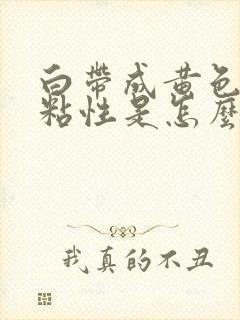 白帶成黃色
粘性是怎麼
我真的不丑